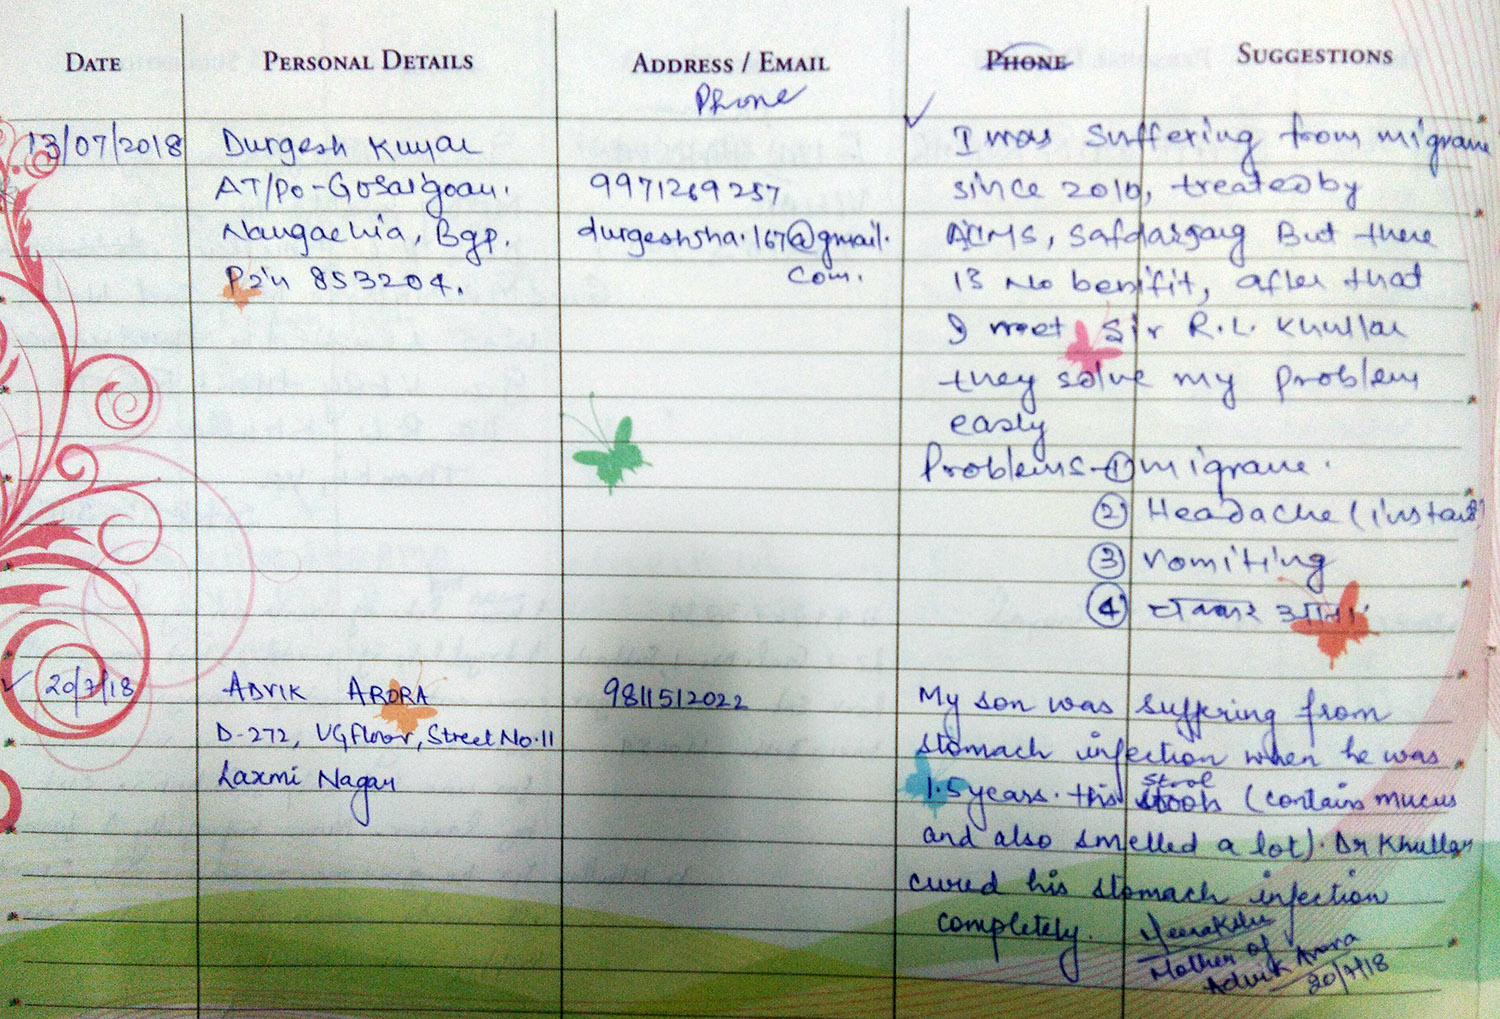 DATE PERSONAL DETAILS ADDRESS / EMAIL PHONE SUGGESTIONS
Phone
13/07/2018 Durgesh Kumar
AT/Po-Gosaigoan.
Naugachia, Bgp.
Pin 853204.
9971269257
durgeshsha.167@gmail.
com.
I was suffering from migrane
since 2010, treated by
AIIMS, Safdargang But there
is no benifit, after that
I meet Sir R.L. Khullar
they solve my problem
easly
Problems-① migrane.
② Headache (instant)
③ vomiting
④ चक्कर आना
20/7/18 ADVIK ARORA
D-272, UGfloor, Street No.11
Laxmi Nagar
9811512022
My son was suffering from
stomach infection when he was
1.5 years. His stool (contain mucus
and also smelled a lot). Dr Khullar
cured his stomach infection
completely.
Mother of
Advik Arora
20/7/18